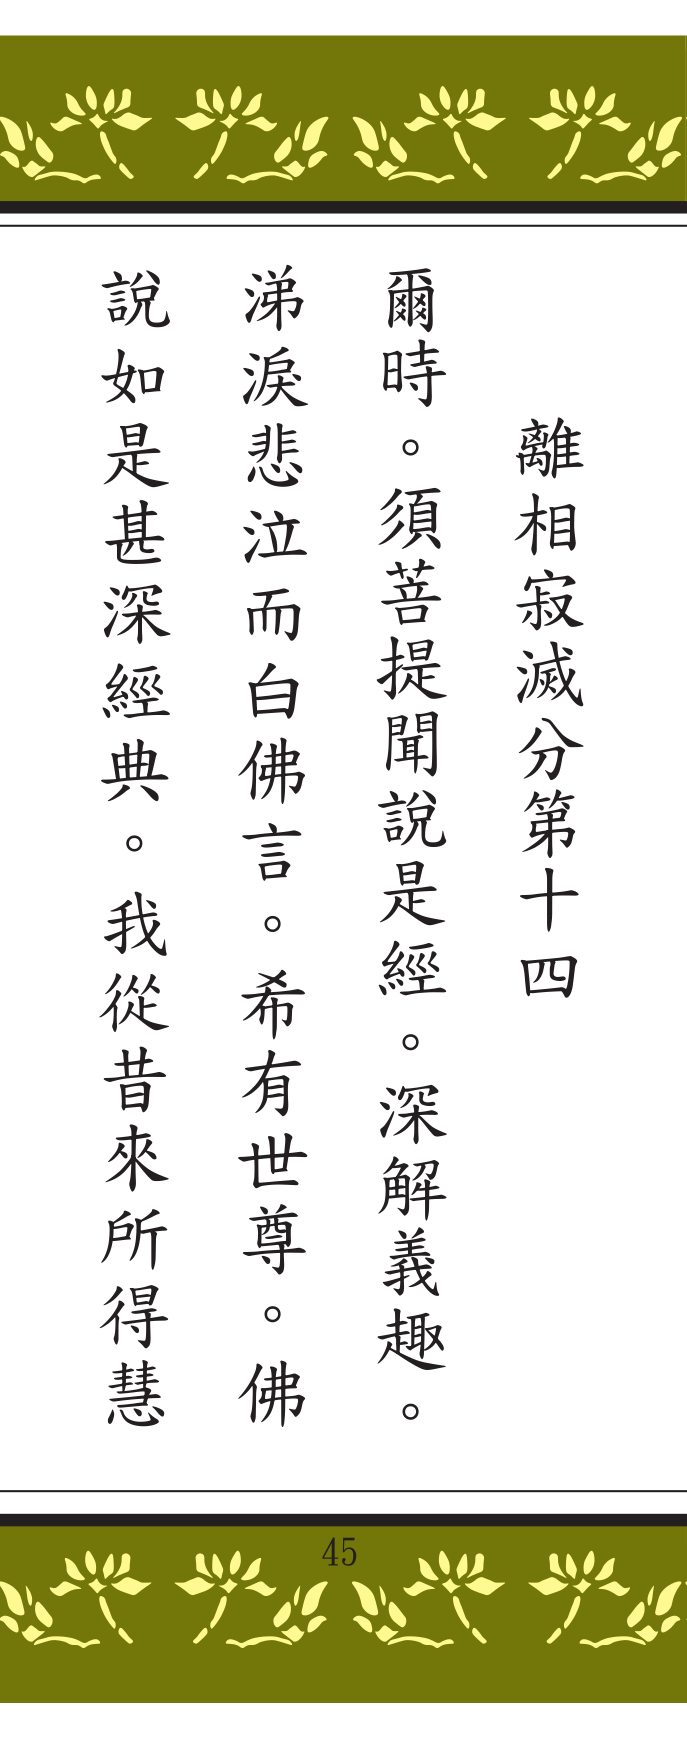 離相寂滅分第十四
爾時。須菩提聞說是經。深解義趣。
涕淚悲泣而白佛言。希有世尊。佛
說如是甚深經典。我從昔來所得慧
45